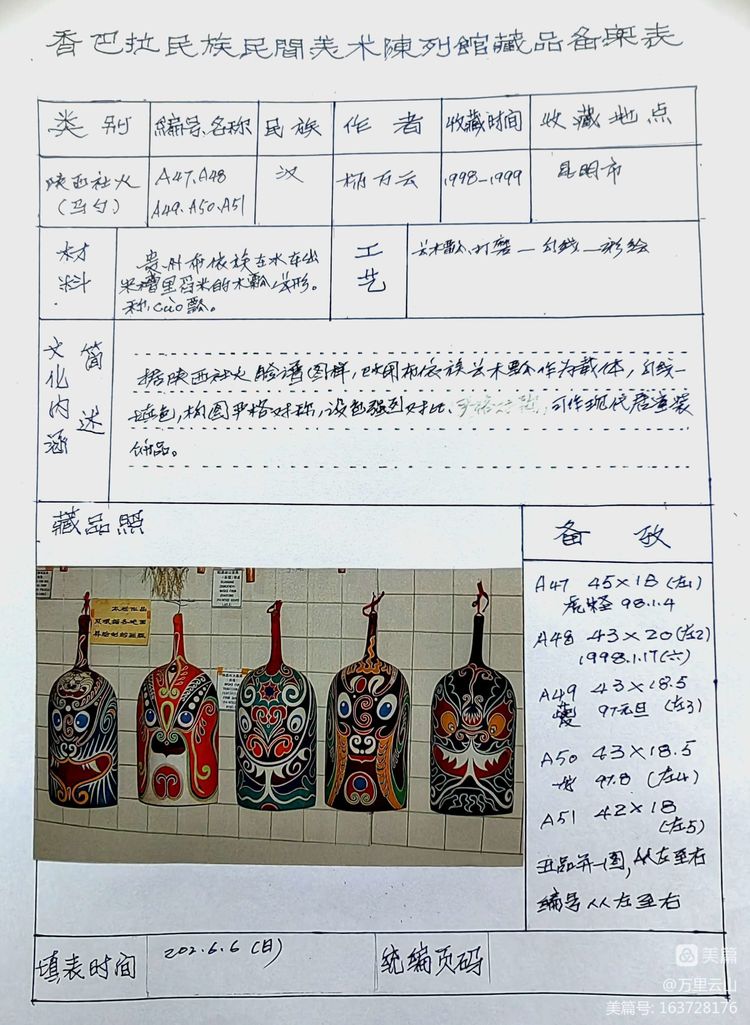 香巴拉民族民間美术陳列館藏品备案表
类别 编号、名称 民族 作者 收藏时间 收藏地点
陕西社火 A47、A48 汉 杨万云 1998—1999 昆明市
（马勺） A49、A50、A51
材料 贵州布依族在水车出
米槽里舀米的木瓢
称，cuò瓢。
工艺 去木瓢、打磨—勾线—彩绘
文化内涵 简述
据陕西社火脸谱图样，以用布依族去木瓢作为载体，勾线—
填色，构图严格对称，设色强烈对比、 可作现代居室装
饰品。
藏品照
备攷
A47 45×18（左1）
虎怪 98.1.4
A48 43×20（左2）
1998.1.17（六）
A49 43×18.5
97元旦（左3）
A50 43×18.5
97.8（左4）
A51 42×18
（左5）
五品并一图，从左至右
编号从左至右
填表时间 202.6.6（日） 统编页码
美篇
@万里云山
美篇号: 163728176